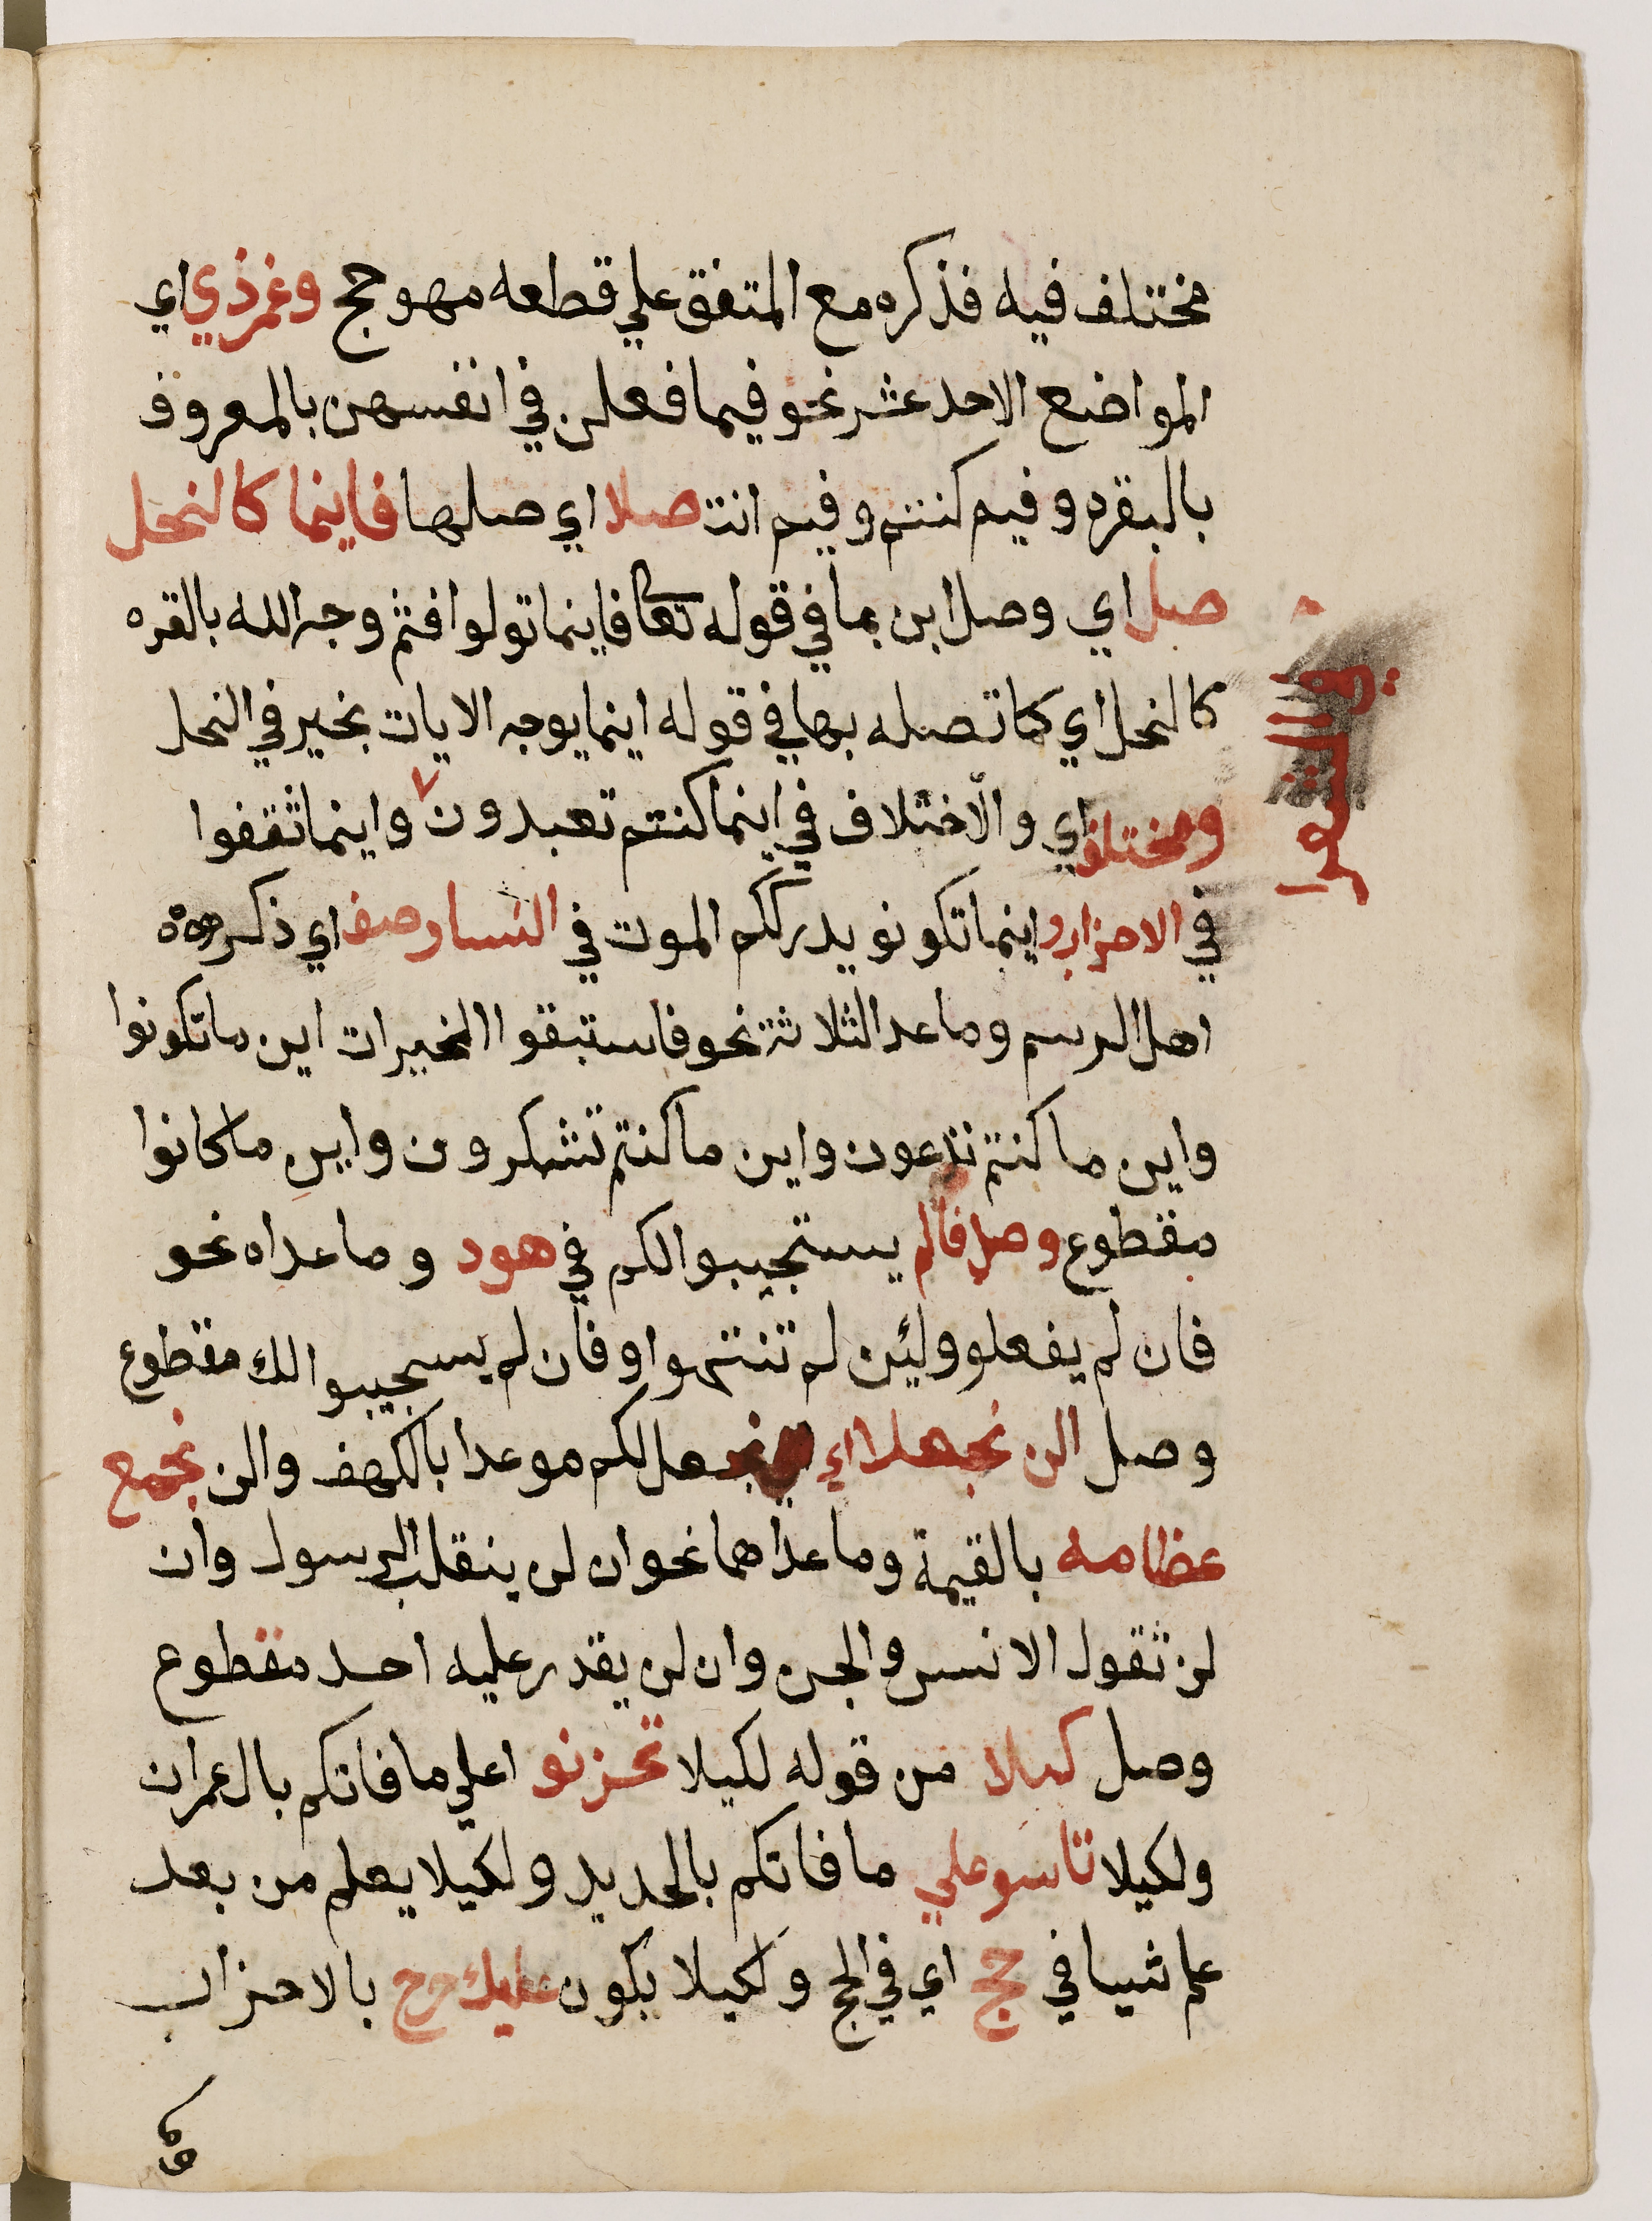 مختلف فيه فذكره مع المتفق علي قطعه مهو حج وغمرذي اي
المواضع الاحد عشر نحو فيما فعلن في انفسهن بالمعروف
بالبقره وفيم كنتم وفيم انت صلا اي صلها فاينما كالنحل
صل اي وصل ابن بما في قوله تعا فاينما تولوا فثم وجه الله بالقره
كالنحل اي كما تصله بها في قوله اينما يوجه الايات بخير في النحل
ومختلف اي والاختلاف في اينما كنتم تعبدون واينما ثقفوا
في الشعرا
في الاحزاب و اينما تكونو يدرككم الموت في النسا وصف اي ذكره
اهل الرسم وما عدا الثلاثة نحو فاستبقوا الخيرات اين ما تكونوا
واين ما كنتم تدعون واين ما كنتم تشكرون واين ما كانوا
مقطوع وصل فالم يستجيبوا لكم في هود وما عداه نحو
فان لم يفعلو ولئن لم تنتهوا وفان لم يسجيبوا لك مقطوع
وصل الن نجعلا اي نجعل لكم موعدا بالكهف والن نجمع
عظامه بالقيمة وما عداهما نحو ان لن ينقلب الرسول وان
لن تقول الانس والجن وان لن يقدر عليه احد مقطوع
وصل كيلا من قوله لكيلا تحزنو اعلي ما فاتكم بال عمران
ولكيلا تاسو علي ما فاتكم بالحديد ولكيلا يعلم من بعد
علم شييا في حج اي في الحج ولكيلا يكون عليك حرج بالاحزاب